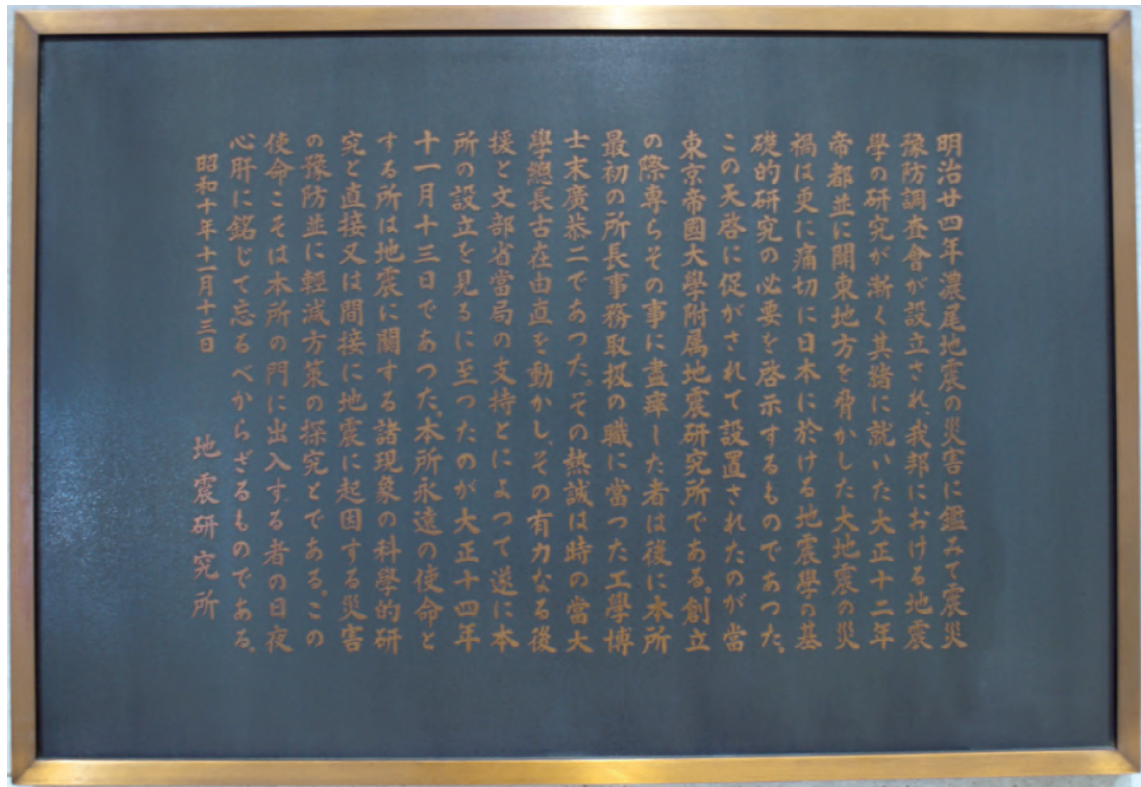 明治廿四年濃尾地震の災害に鑑みて震災
豫防調査會が設立され、我邦における地震
學の研究が漸く其緒に就いた大正十二年
帝都並に關東地方を脅かした大地震の災
禍は更に痛切に日本に於ける地震學の基
礎的研究の必要を啓示するものであつた。
この天啓に促がされて設置されたのが當
東京帝國大學附属地震研究所である。創立
の際専らその事に盡瘁した者は後に本所
最初の所長事務取扱の職に當つた工學博
士末廣恭二であつた。その熱誠は時の當大
學總長古在由直を動かし、その有力なる後
援と文部省當局の支持とによつて遂に本
所の設立を見るに至つたのが大正十四年
十一月十三日であつた。本所永遠の使命と
する所は地震に關する諸現象の科學的研
究と直接又は間接に地震に起因する災害
の豫防並に輕減方策の探究とである。この
使命こそは本所の門に出入する者の日夜
心肝に銘じて忘るべからざるものである。
昭和十年十一月十三日 地震研究所